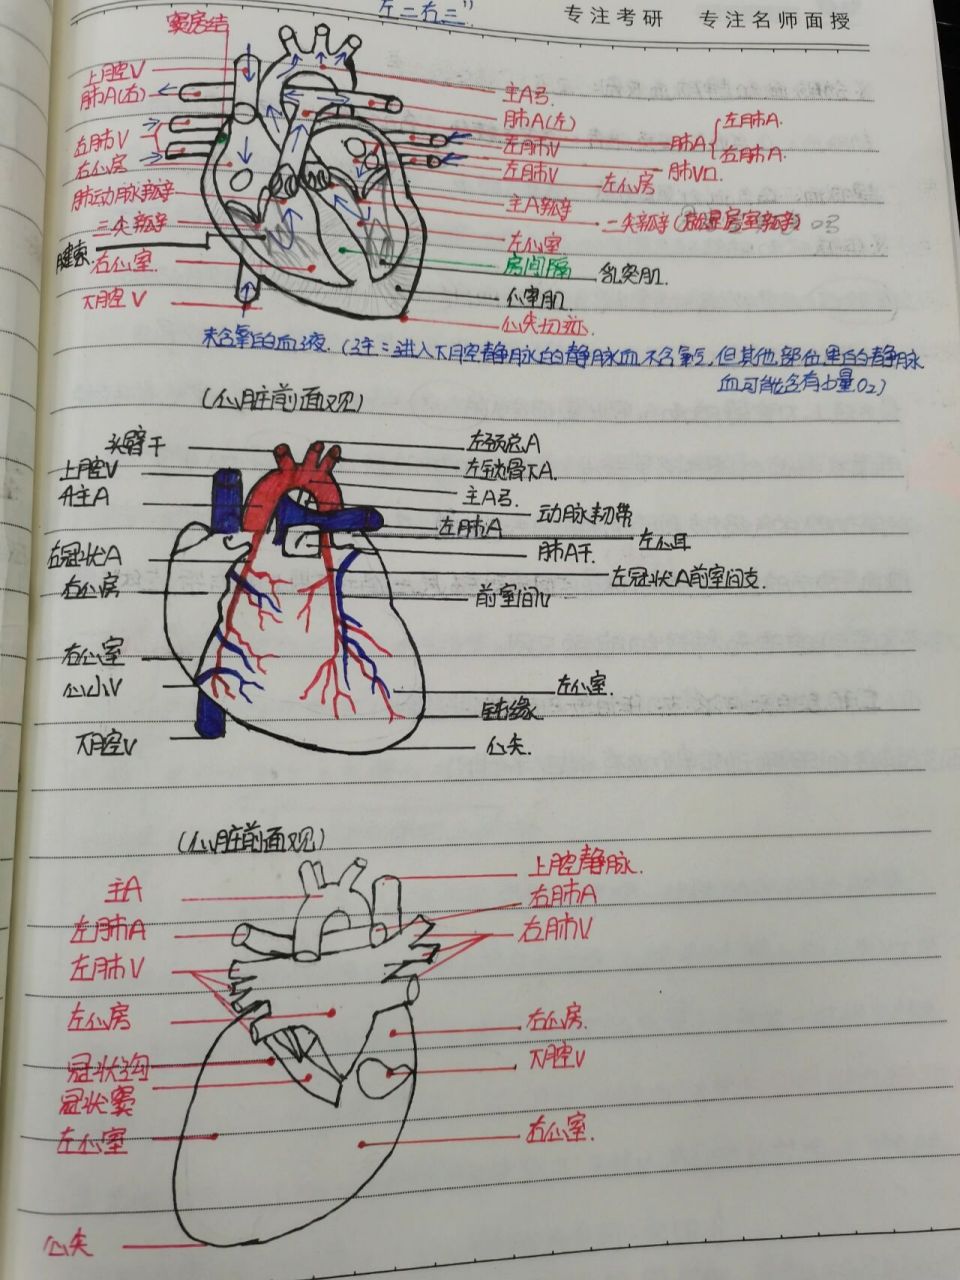 左二右三"
专注考研 专注名师面授
窦房结
上腔V
肺A(右)
左肺V
右心房
肺动脉瓣
二尖瓣
腱索
右心室
下腔V
主A弓
肺A(左)
左肺V
左肺V
主A瓣
左心室
房间隔
乳突肌
心室肌
心尖切迹
肺A
左肺A
右肺A
左心房
肺V口
二尖瓣
未含氧的血液.(注:进入下腔静脉的静脉血不含氧,但其他部位里的静脉
血可能含有少量O₂)
(心脏前面观)
头臂干
上腔V
升主A
右冠状A
右心房
右心室
心小V
下腔V
左颈总A
左锁骨下A
主A弓
动脉韧带
左肺A
左心耳
肺A干
左冠状A前室间支
前室间V
左心室
钝缘
心尖
(心脏前面观)
主A
左肺A
左肺V
左心房
冠状沟
冠状窦
左心室
心尖
上腔静脉
右肺A
右肺V
右心房
下腔V
右心室